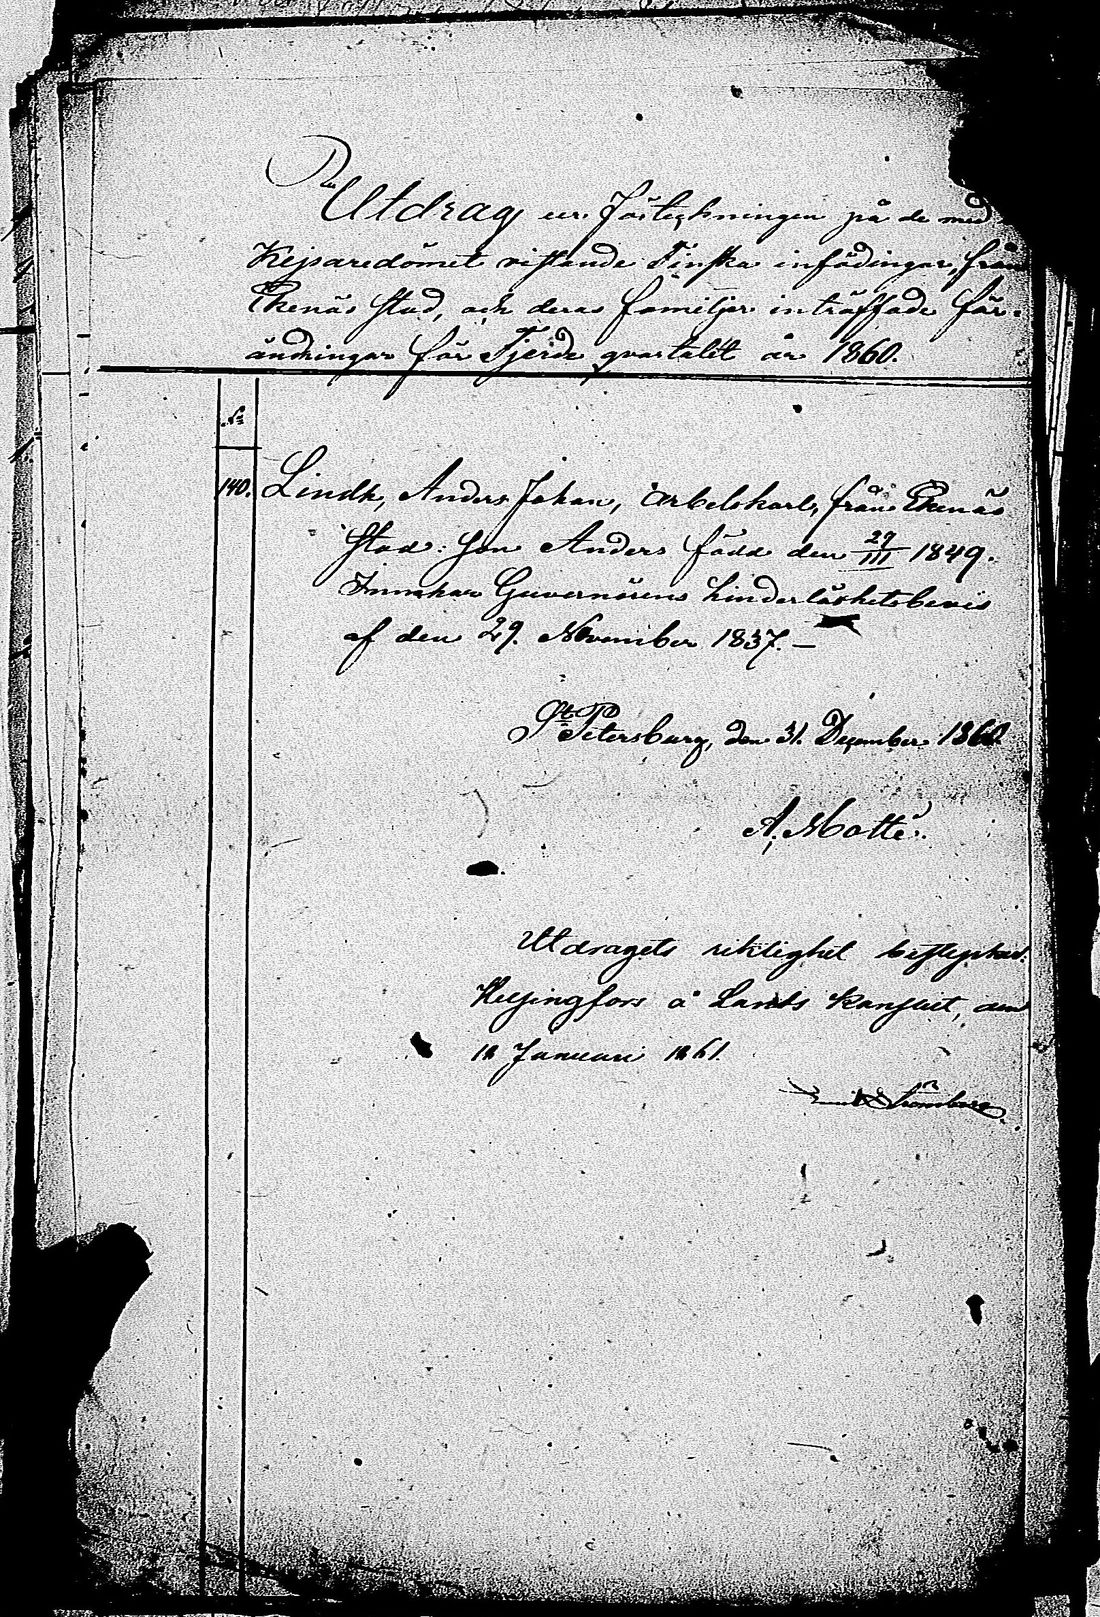 Utdrag ur Förteckningen på de med
Kejsaredömet vistande Finska infödingar, från
Ekenäs stad, och deras familjer inträffade för-
ändringar för Fjerde qvartalet år 1860.
№
140. Lindh, Anders Johan, arbetskarl, från Ekenäs
stad: son Anders född den 29/III 1849.
Innehar Guvernörens hinderlöshetsbevis
af den 29. November 1837. —
St. Petersburg, den 31. December 1860.
A. Motté.
Utdragets riktighet bestyrker.
Helsingfors å Lands Kansliet, den
18 Januari 1861.
Strömberg